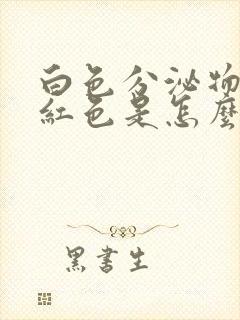 白色分泌物
紅色是怎麼
黑書生